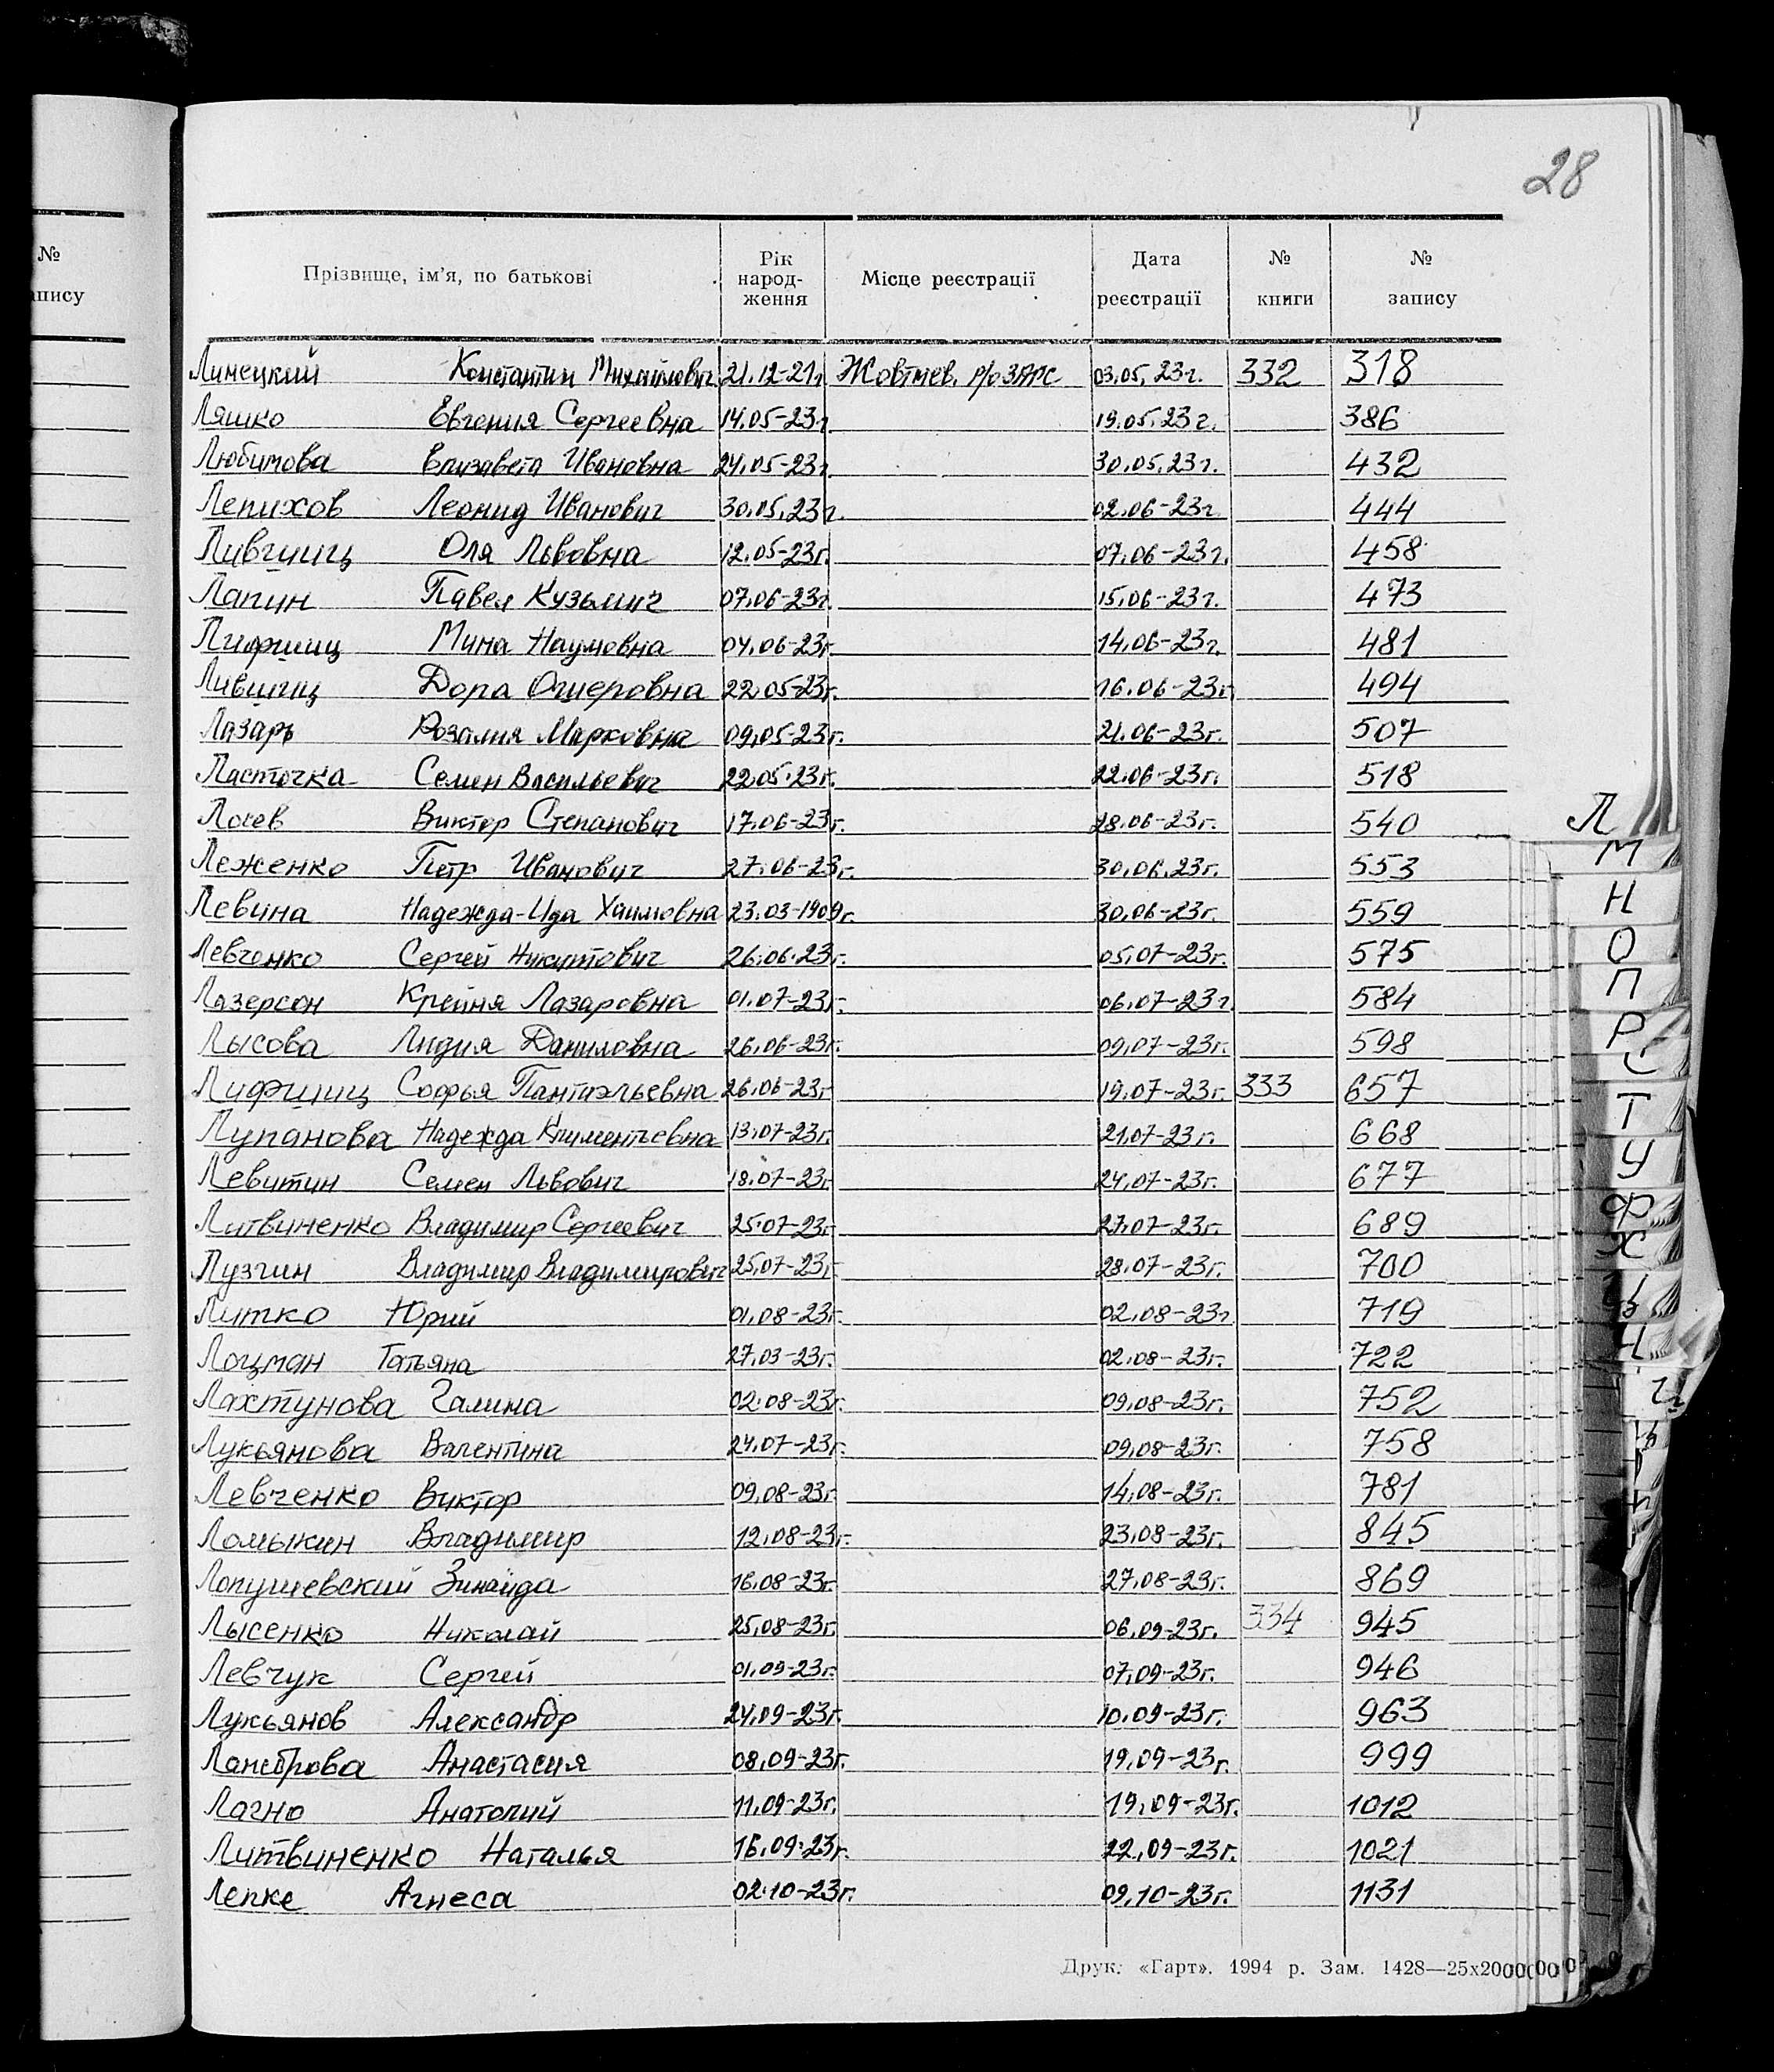 28
№
запису
Прізвище, ім'я, по батькові Рік народ-ження Місце реєстрації Дата реєстрації № книги № запису
Линецкий Константин Михайлович 21.12-21г Жовтнев. р/о ЗАГС 03.05.23г. 332 318
Ляшко Евгения Сергеевна 14.05-23г 19.05.23г. 386
Любимова Елизавета Ивановна 24.05-23г 30.05.23г. 432
Лепихов Леонид Иванович 30.05.23г. 02.06-23г 444
Лившиц Оля Львовна 12.05-23г. 07.06-23г. 458
Лапин Павел Кузьмич 07.06-23г. 15.06-23г. 473
Лифшиц Мина Наумовна 04.06-23г. 14.06-23г. 481
Лившиц Дора Ошеровна 22.05-23г. 16.06-23г. 494
Лазарь Розалия Марковна 09.05-23г. 21.06-23г. 507
Ласточка Семен Васильевич 22.05.23г. 22.06-23г. 518
Лосев Виктор Степанович 17.06-23г. 28.06-23г. 540
Леженко Петр Иванович 27.06-23г. 30.06.23г. 553
Левина Надежда-Ида Хаимовна 23.03-1909г. 30.06-23г. 559
Левченко Сергей Никитович 26.06.23г. 05.07-23г. 575
Лазерсон Крейня Лазаровна 01.07-23г. 06.07-23г. 584
Лысова Лидия Даниловна 26.06-23г. 09.07-23г. 598
Лифшиц Софья Пантиэльевна 26.06-23г 19.07-23г. 333 657
Лупанова Надежда Климентьевна 13.07-23г. 21.07-23г. 668
Левитин Семен Львович 18.07-23г. 24.07-23г. 677
Литвиненко Владимир Сергеевич 25.07-23г. 27.07-23г. 689
Лузгин Владимир Владимирович 25.07-23г. 28.07-23г. 700
Литко Юрий 01.08-23г. 02.08-23г 719
Лоцман Татьяна 27.03-23г. 02.08-23г. 722
Лахтунова Галина 02.08-23г. 09.08-23г. 752
Лукьянова Валентина 24.07-23г. 09.08-23г. 758
Левченко Виктор 09.08-23г. 14.08-23г. 781
Ломыкин Владимир 12.08-23г. 23.08-23г. 845
Лопушевский Зинаида 16.08-23г. 27.08-23г. 869
Лысенко Николай 25.08-23г. 06.09-23г. 334 945
Левчук Сергей 01.09-23г. 07.09-23г. 946
Лукьянов Александр 24.09-23г. 10.09-23г. 963
Анастасия 08.09-23г. 19.09-23г. 999
Лагно Анатолий 11.09-23г. 19.09-23г. 1012
Литвиненко Наталья 16.09-23г. 22.09-23г. 1021
Лепке Агнеса 02.10-23г. 09.10-23г. 1131
Друк. «Гарт». 1994 р. Зам. 1428—25х20000
Л
М
Н
О
П
Р
С
Т
У
Ф
Х
Ц
Ч